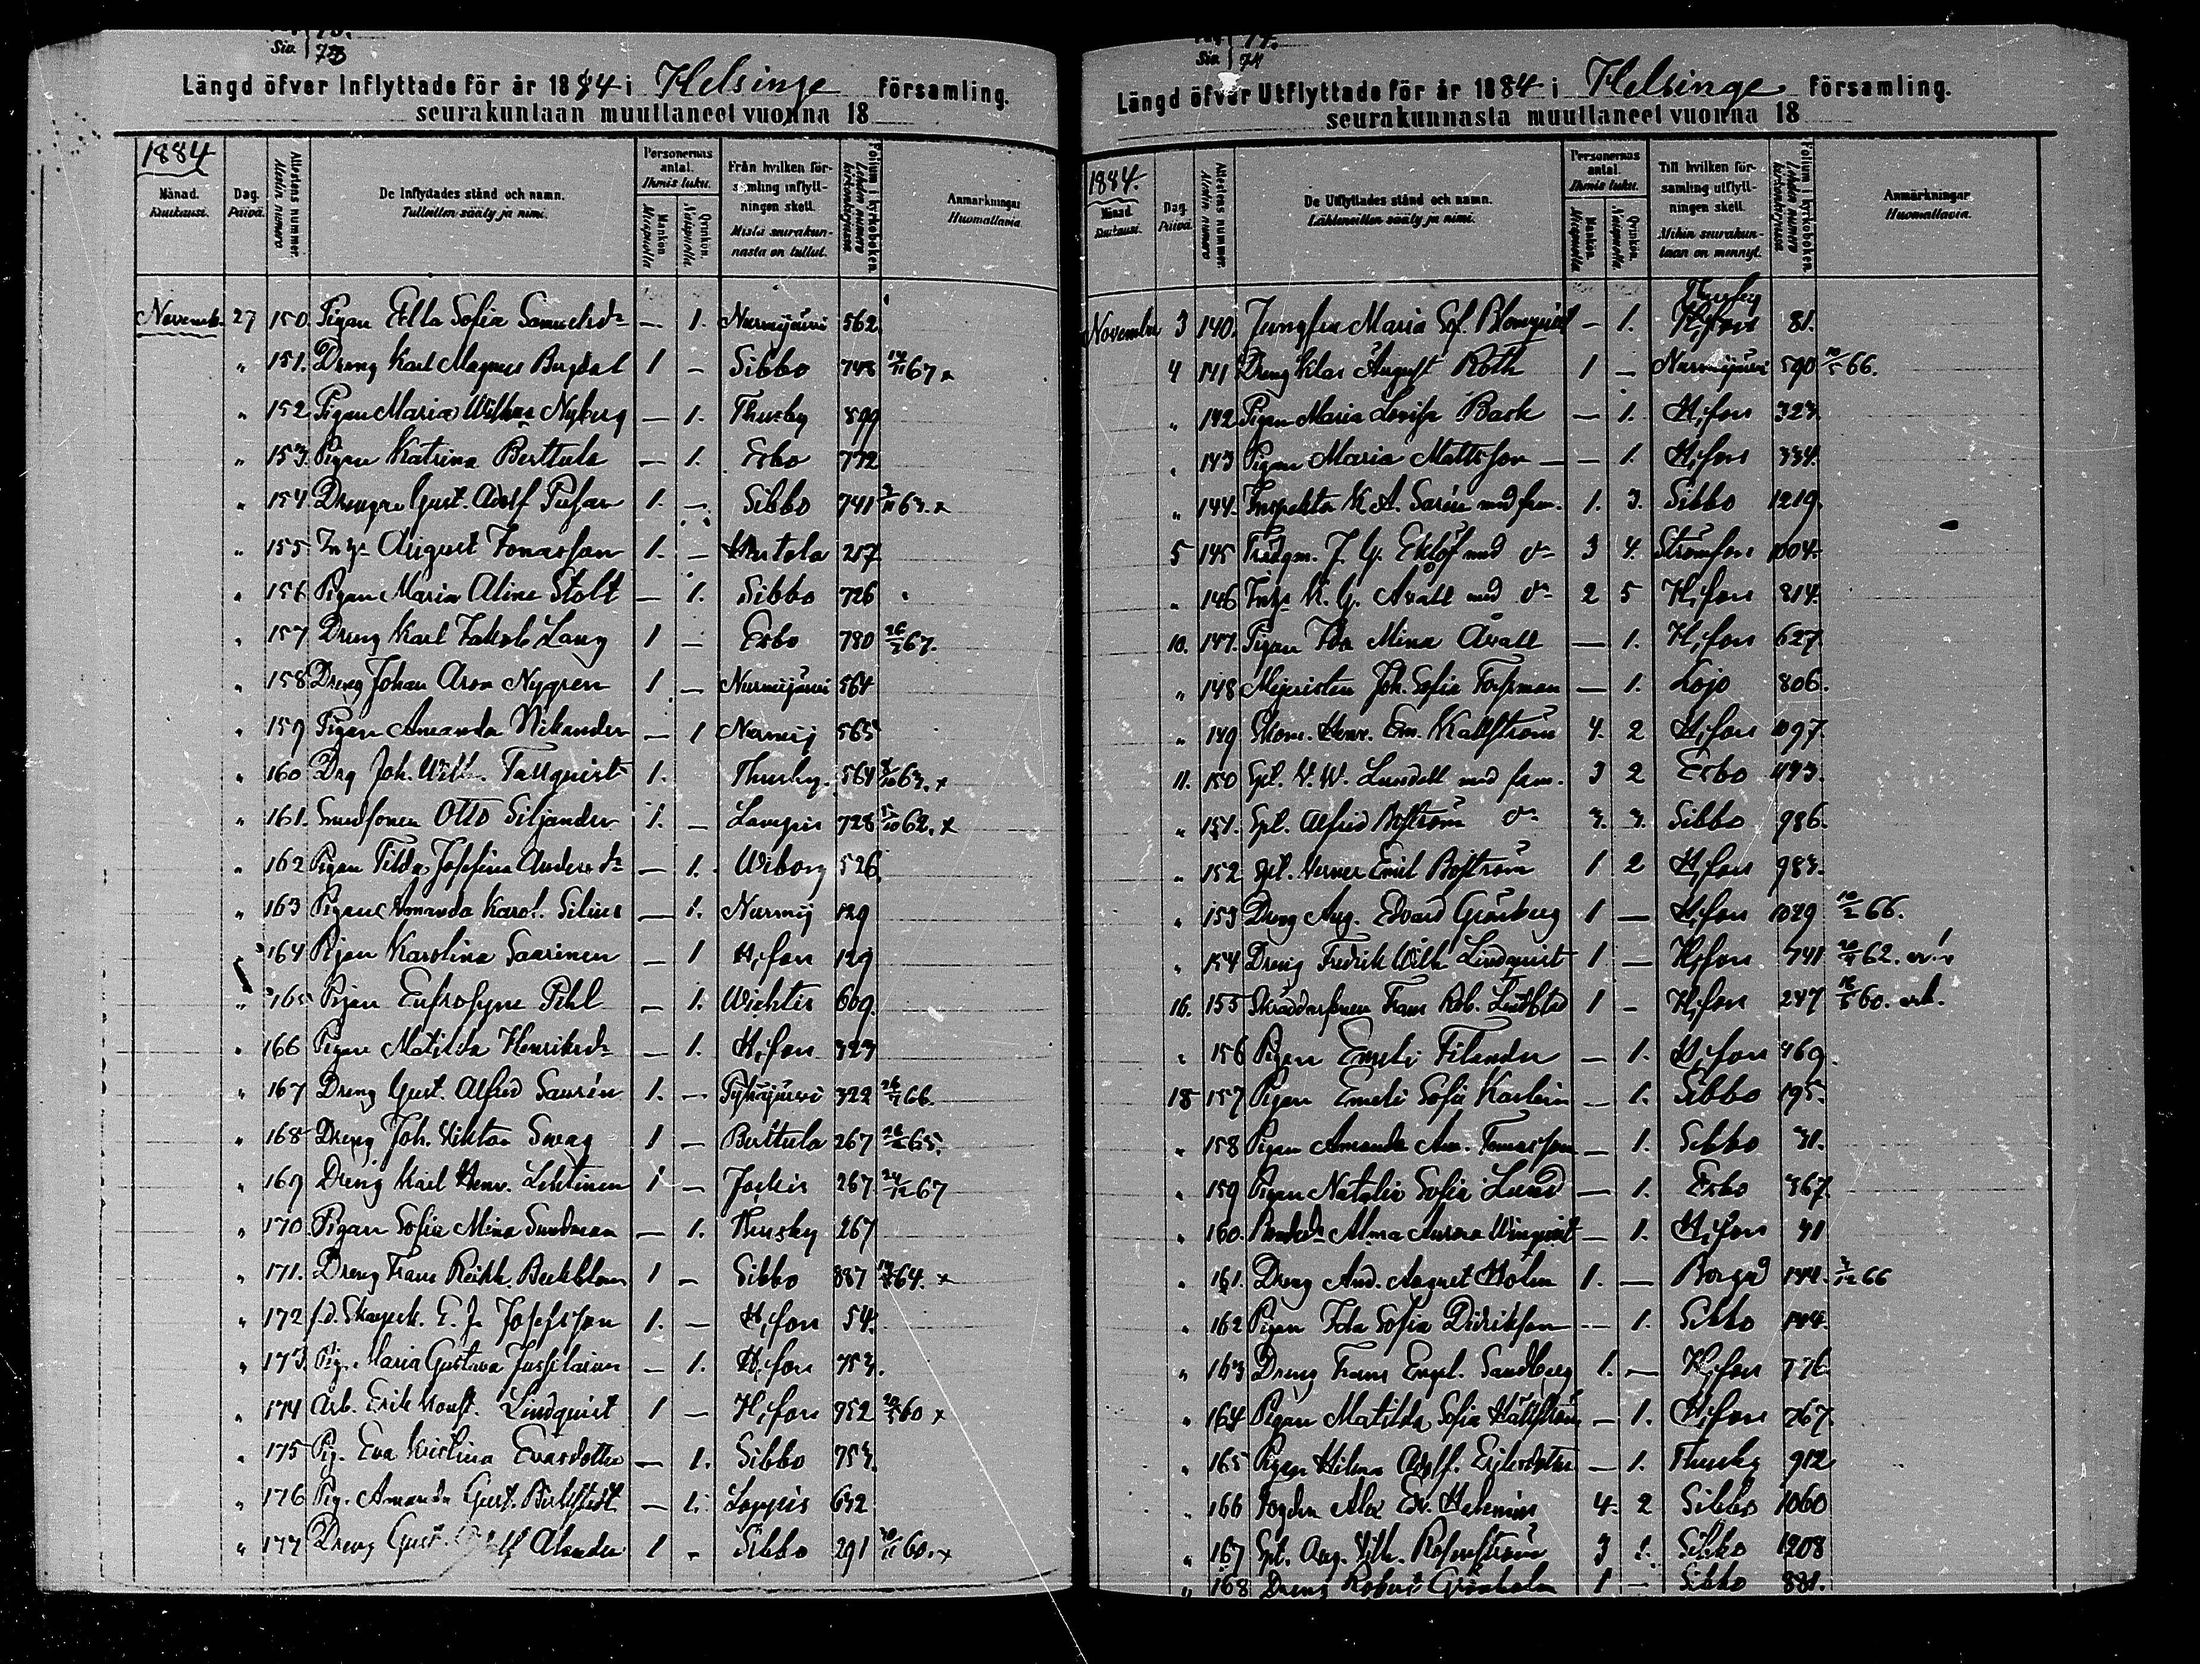 Siv. 73
Längd öfver Inflyttade för år 1884 i Helsinge församling.
seurakuntaan muuttaneet vuonna 18
1884
Månad. Kuukausi.
Dag. Päivä.
Attestens nummer. Alestin numero
De Inflyttades stånd och namn. Tulleitten sääty ja nimi.
Personernas antal. Ihmis luku.
Mankön. Miespuolia
Qvinkön. Naispuolia
Från hvilken församling inflyttningen skett. Mistä seurakunnasta on tullut.
Folium i kyrkoboken. Lehden numero kirkonkirjassa
Anmärkningar Huomattavia.
Novemb. 27 150 Pigan Ella Sofia Samuelsdr — 1. Nurmijärvi 562.
" 151. Dreng Karl Magnus Bergdal 1 — Sibbo 748 67 x
" 152 Pigan Maria Wilhna Nyberg — 1. Thusby 899
" 153. Pigan Katrina Berttula — 1. Esbo 772
" 154 Drengen Gust. Adolf 1. — Sibbo 741 63. x
" 155 August Jonasson 1. — Hartola 217
" 156 Pigan Maria Alina Stolt — 1. Sibbo 726
" 157 Dreng Karl Jakob Lang 1 — Esbo 780 67.
" 158 Dreng Johan Aron Nygren 1 — Nurmijärvi 564
" 159 Pigan Amanda Nikander — 1 Nurmij 565
" 160 Drg Joh. Wilh. Tallquist 1. Thusby. 564 63. x
" 161. Smedsonen Otto Siljander 1. — Lampis 728 62. x
" 162 Pigan Tilda Josefina Andersdr — 1. Wiborg 526.
" 163 Pigan Amanda Karol. Silius — 1. Nurmij 129
" 164 Pigan Karolina Saarinen — 1 H,fors 129
" 165 Pigan Eufrosyne Pihl — 1. Wichtis 609.
" 166 Pigan Matilda Henriksdr — 1. H,fors 323
" 167 Dreng Gust. Alfred Saurén 1. — Pyhäjärvi 322 66.
" 168 Dreng Joh. Viktor Swag 1 — Berttula 267 65.
" 169 Dreng Karl Henr. Lehtinen 1 — Jockis 267 67
" 170 Pigan Sofia Mina Sundman — 1. Thusby 267
" 171. Dreng Frans Beckblom 1 — Sibbo 887 64. x
" 172 f.d. E. J. Josefsson 1. — H,fors 54.
" 173. Pig. Maria Gustava — 1. H,fors 753.
" 174 Arb. Erik Konst. Lindquist 1 — H,fors 952 60 x
" 175 Pig. Eva Kristina Evasdotter — 1. Sibbo 753.
" 176 Pig. Amanda Gust. — 1. Loppis 632
" 177 Dreng Gust. Alander 1 - Sibbo 291 60. x
Siv. 74
Längd öfver Utflyttade för år 1884 i Helsinge församling.
seurakunnasta muuttaneet vuonna 18
1884.
Månad. Kuukausi.
Dag. Päivä.
Attestens nummer. Alestin numero
De Utflyttades stånd och namn. Lähteneitten sääty ja nimi.
Personernas antal. Ihmis luku.
Mankön. Miespuolia
Qvinkön. Naispuolia
Till hvilken församling utflyttningen skett. Mihin seurakuntaan on mennyt.
Folium i kyrkoboken. Lehden numero kirkonkirjassa
Anmärkningar Huomattavia.
November 3 140. Jungfru Maria Sof. Blomqvist — 1. Thusby 81.
4 141 Dreng Klas August Roth 1 — Nurmijärvi 590 66.
" 142 Pigan Maria Lovisa Back — 1. H,fors 323.
" 143 Pigan Maria Mattsson — — 1. H,fors 334.
" 144. Inspektor K. A. Sarén med fam. 1. 3. Sibbo 1219.
5 145 Trädgm. J. G. Eklöf med do 3 4. Strömfors 1004.
" 146 K. G. Avall med do 2 5 H,fors 814.
10. 147. Pigan Ida Mina Avall — 1. H,fors 627.
" 148 Mejeristen Joh. Sofia Forssman — 1. Lojo 806.
" 149 Skom. Henr. Em. Kallström 4. 2 H,fors 1097.
11. 150 Spl. V. W. Lundell med fam. 3 2 Esbo 473.
" 151. Spl. Alfred Boström do 3. 3. Sibbo 986.
" 152 Spl. Verner Emil Boström 1 2 H,fors 983.
" 153 Dreng Aug. Edvard Grönberg 1 — H,fors 1029 66.
" 154 Dreng Fredrik Wilh Lindquist 1 — H,fors 741 62.
16. 155 Skräddarsonen Frans Rob. 1 - H,fors 247 60.
" 156 Pigan Emeli Filander — 1. H,fors 469.
18 157 Pigan Emeli Sofia — 1. Sibbo 195.
" 158 Pigan Amanda — 1. Sibbo 31.
" 159 Pigan Natalia Sofia Lund — 1. Esbo 367.
" 160. Alma Aurora Winquist — 1. H,fors 41
" 161. Dreng And. August Holm 1. — Borgå 144. 66
" 162 Pigan Ida Sofia Didriksson — 1. Sibbo 144.
" 163 Dreng Frans Engel. Sandberg 1. — H,fors 776.
" 164 Pigan Matilda Sofia Hällström — 1. H,fors 767.
" 165 Pigan Hilma Adolf. — 1. Thusby 912
" 166 Alex Edv. 4. 2 Sibbo 1060
" 167 Spl. Aug. Vilh. Rosenström 3 1. Sibbo 1208
" 168 Dreng Robert Grönholm 1 — Sibbo 881.